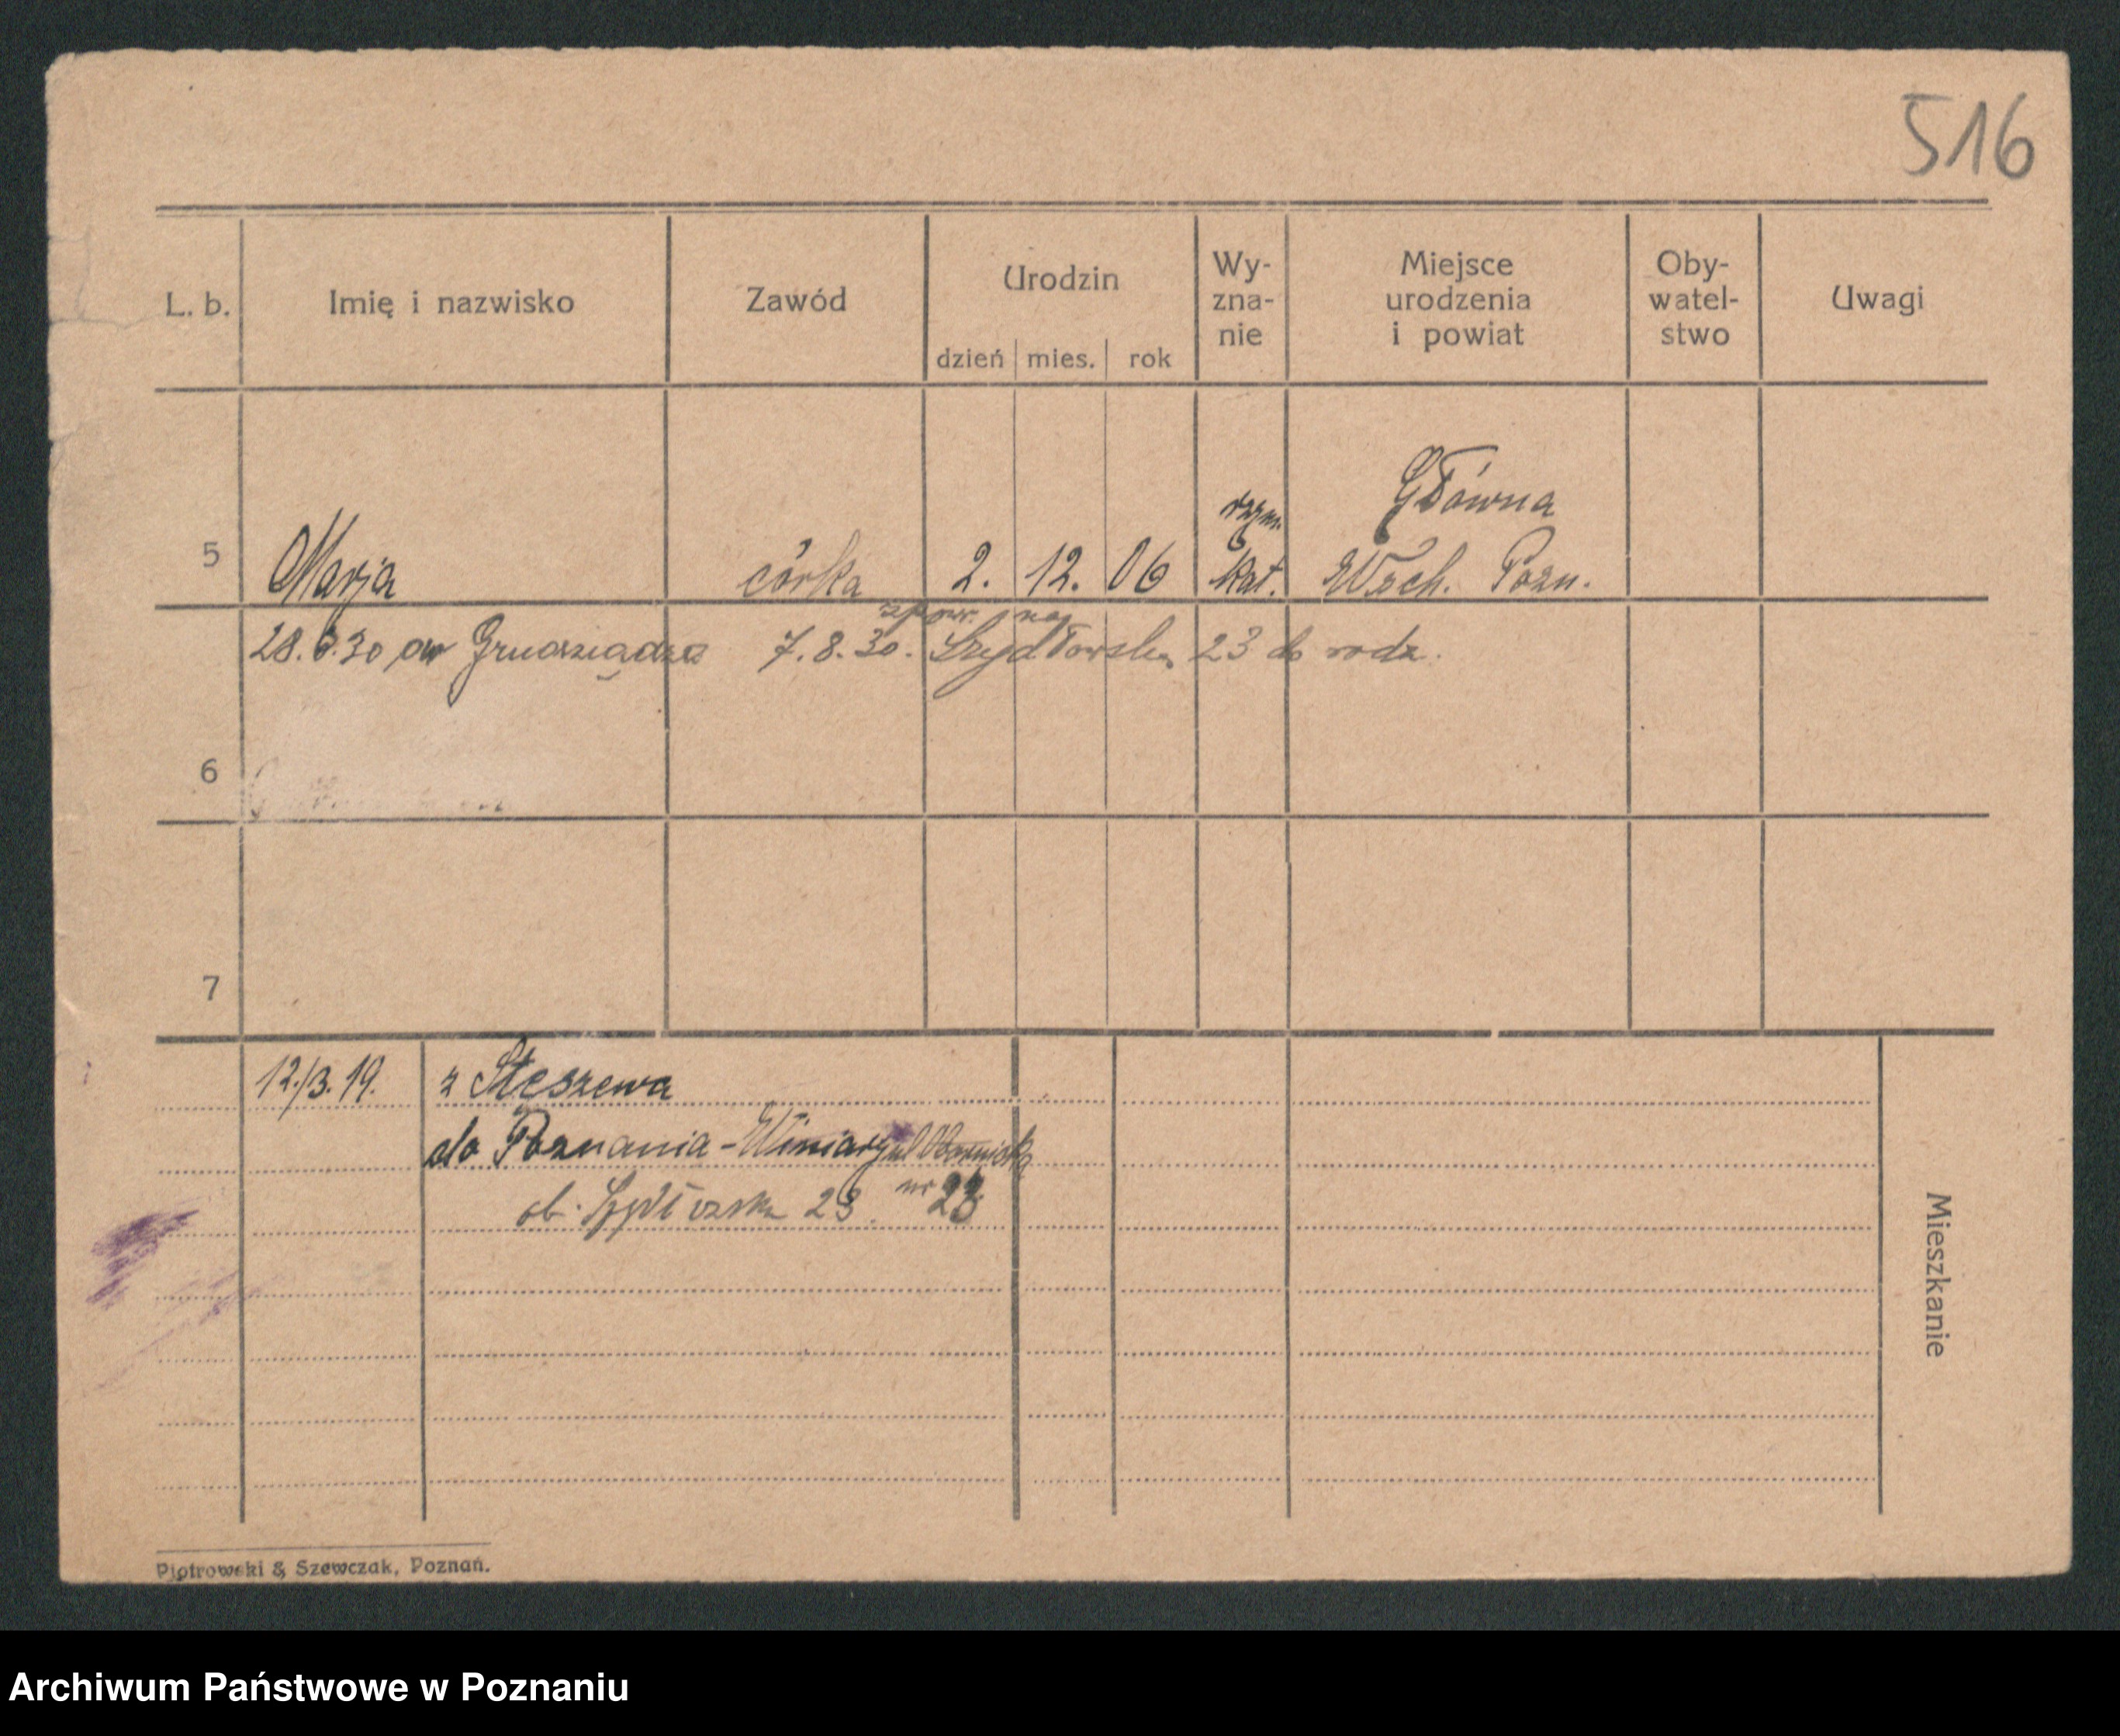 516
L. b.
Imię i nazwisko
Zawód
Urodzin
dzień mies. rok
Wy-
zna-
nie
Miejsce
urodzenia
i powiat
Oby-
watel-
stwo
Uwagi
5 Marja córka 2. 12. 06 rzym. kat. Główna
Wsch. Pozn.
zpowr. na
28.6.30 do Grudziądza 7.8.30. Szydłowska 23 do rodz.
6
7
12./3.19. z Stęszewa
do Poznania-Winiary ul Obornicka
nr 23
ob. 23
Mieszkanie
Piotrowski & Szewczak, Poznań.
Archiwum Państwowe w Poznaniu